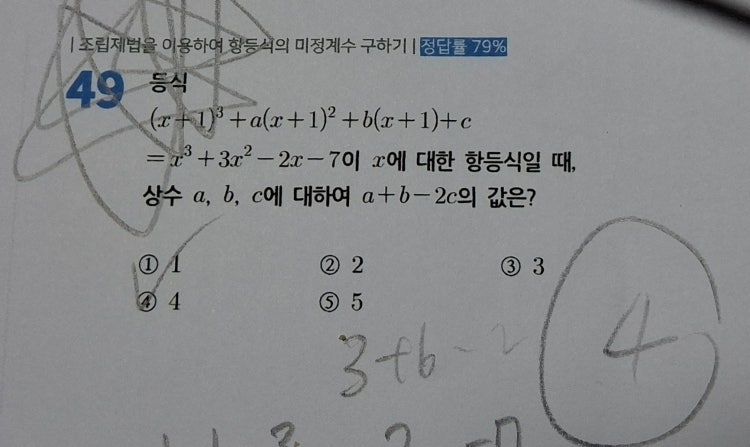 | 조립제법을 이용하여 항등식의 미정계수 구하기 | 정답률 79%
49 등식
(x+1)³+a(x+1)²+b(x+1)+c
=x³+3x²-2x-7이 x에 대한 항등식일 때,
상수 a, b, c에 대하여 a+b-2c의 값은?
① 1 ② 2 ③ 3
④ 4 ⑤ 5
3+b-2
4